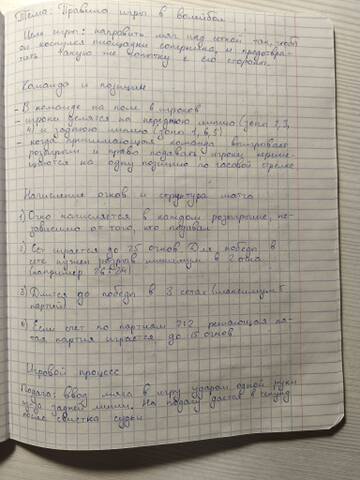 Тема: Правила игры в волейбол
Цель игры: направить мяч над сеткой так, чтобы
он коснулся площадки соперника, и предотвра-
тить такую же попытку с его стороны.
Команда и позиции
- В команде на поле 6 игроков
- игроки делятся на переднюю линию (зоны 2,3,
4) и заднюю линию (зоны 1,6,5)
- когда принимающая команда выигрывает
розыгрыш и право подавать, игроки переме-
щаются на одну позицию по часовой стрелке
Начисление очков и структура матча
1) Очко начисляется в каждом розыгрыше, не-
зависимо от того, кто подавал
2) Сет играется до 25 очков Для победы в
сете нужен разрыв минимум в 2 очка
(например 26-24)
3) Длится до победы в 3 сетах (максимум 5
партий)
4) Если счет по партиям 2:2, решающая пя-
тая партия играется до 15 очков
Игровой процесс
Подача: Ввод мяча в игру ударом одной руки
из-за задней линии. На подачу дается 8 секунд
после свистка судьи